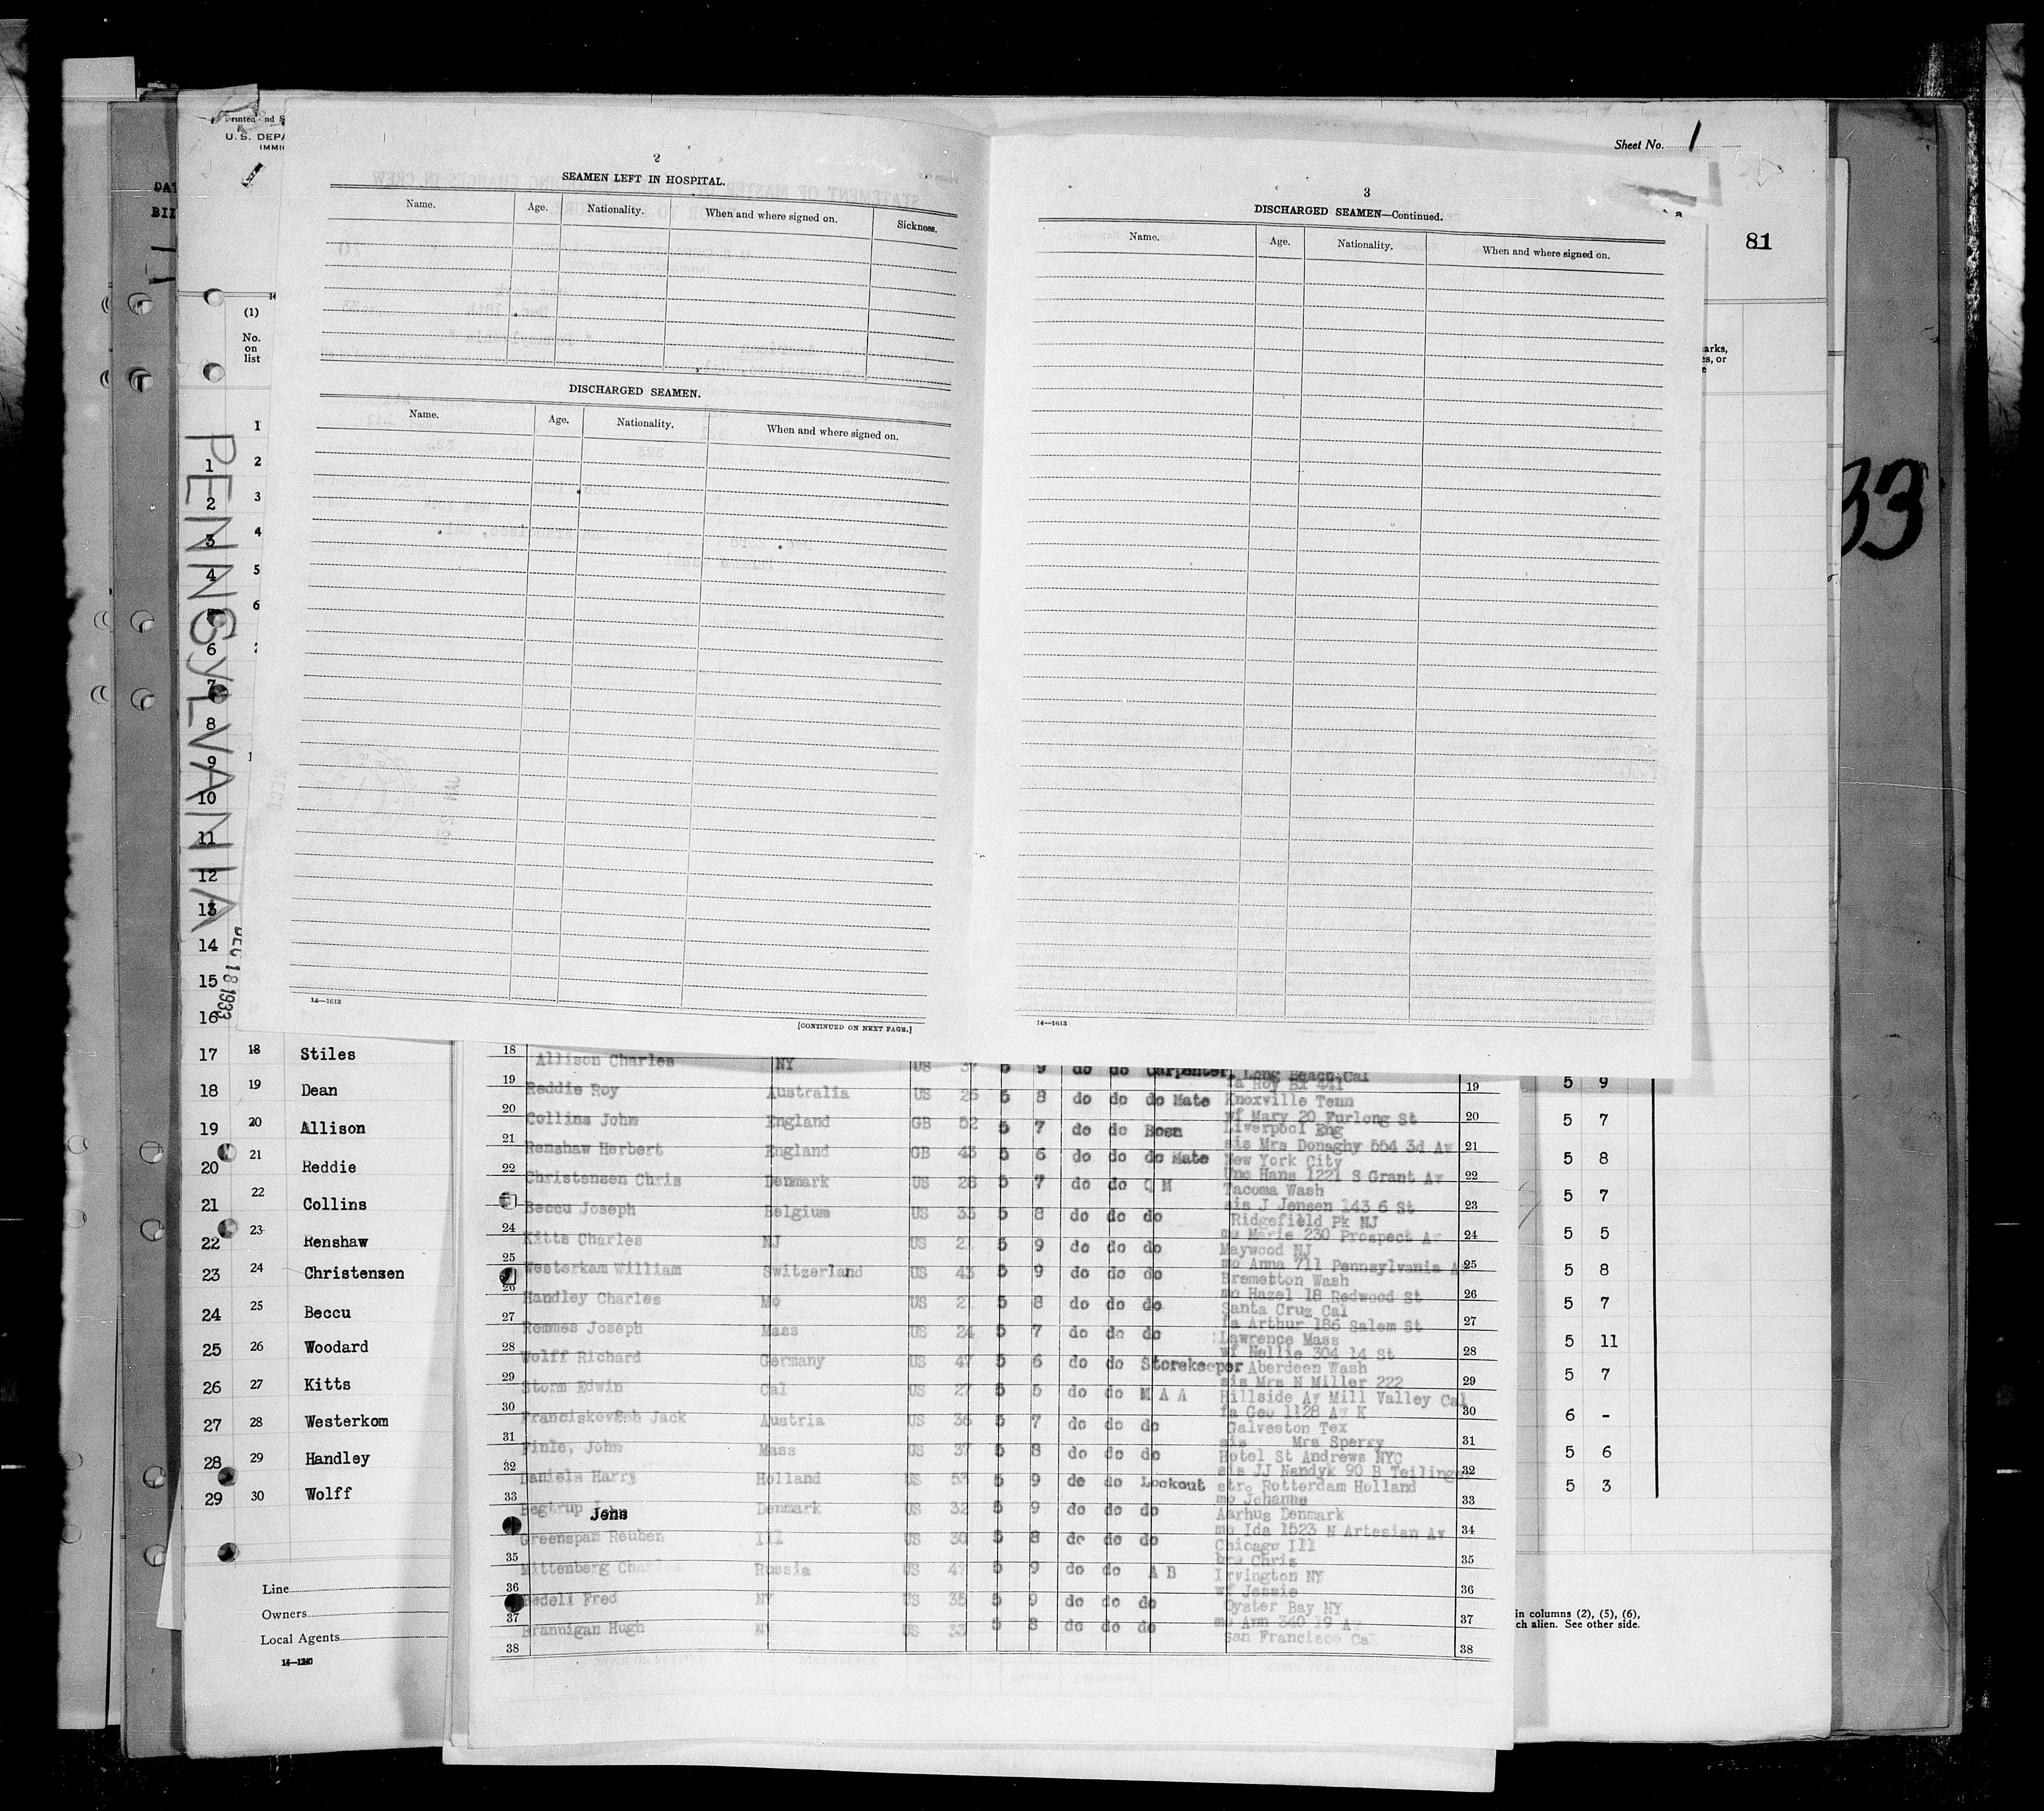 U.S. DEPA
IMMIG
Sheet No. 1
81
33
PENNSYLVANIA
DEC 18 1933
2
SEAMEN LEFT IN HOSPITAL.
Name. Age. Nationality. When and where signed on. Sickness.
DISCHARGED SEAMEN.
Name. Age. Nationality. When and where signed on.
14—1613
[CONTINUED ON NEXT PAGE.]
3
DISCHARGED SEAMEN—Continued.
Name. Age. Nationality. When and where signed on.
14—1613
(1)
No.
on
list
1 2
2 3
3 4
4 5
5 6
6
7
8
9
10
11
12
13
14
15
16
17 18 Stiles
18 19 Dean
19 20 Allison
20 21 Reddie
21 22 Collins
22 23 Renshaw
23 24 Christensen
24 25 Beccu
25 26 Woodard
26 27 Kitts
27 28 Westerkom
28 29 Handley
29 30 Wolff
Line
Owners
Local Agents
14—1240
18 Allison Charles NY US 37 5 9 do do Carpenter Long Beach Cal
19 Reddie Roy Australia US 26 5 8 do do do Mate fa Roy Bx 441 19
Knoxville Tenn
20 Collins John England GB 52 5 7 do do Bosn wf Mary 20 Furlong St 20
Liverpool Eng
21 Renshaw Herbert England GB 43 5 6 do do do Mate sis Mrs Donaghy 554 3d Av 21
New York City
22 Christensen Chris Denmark US 28 5 7 do do Q M Unc Hans 1221 S Grant Av 22
Tacoma Wash
Beccu Joseph Belgium US 35 5 8 do do do sis J Jensen 143 6 St 23
Ridgefield Pk NJ
24 Kitts Charles NJ US 2 5 9 do do do mo Marie 230 Prospect Av 24
Maywood NJ
25 Westerkam William Switzerland US 43 5 9 do do do mo Anna 711 Pennsylvania 25
Bremerton Wash
26 Handley Charles Mo US 2 5 8 do do do mo Hazel 18 Redwood St 26
Santa Cruz Cal
27 Remmes Joseph Mass US 24 5 7 do do do fa Arthur 186 Salem St 27
Lawrence Mass
28 Wolff Richard Germany US 47 5 6 do do Storekeeper wf Nellie 304 14 St 28
Aberdeen Wash
29 Storm Edwin Cal US 27 5 5 do do M A A sis Mrs N Miller 222 29
Hillside Av Mill Valley Cal
30 Jack Austria US 36 5 7 do do do fa Geo 1128 Av K 30
Galveston Tex
31 Finle, John Mass US 37 5 8 do do do sis Mrs Sperry 31
Hotel St Andrews NYC
32 Daniels Harry Holland US 53 5 9 do do Lookout sis JJ Nandyk 90 B Teilinge 32
str. Rotterdam Holland
33 Begtrup Jens Denmark US 32 5 9 do do do mo Johanne 33
Aarhus Denmark
Greenspan Reuben Ill US 30 5 8 do do do mo Ida 1523 N Artesian Av 34
Chicago Ill
35 Mittenberg Russia US 47 5 9 do do A B bro Chris 35
Irvington NY
36 Bedell Fred NY US 35 5 9 do do do wf Jessie 36
Oyster Bay NY
37 Brannigan Hugh NY US 33 5 8 do do do mo Ann 340 19 Av 37
San Francisco Cal
38 38
5 9
5 7
5 8
5 7
5 5
5 8
5 7
5 11
5 7
6 -
5 6
5 3
in columns (2), (5), (6),
ch alien. See other side.